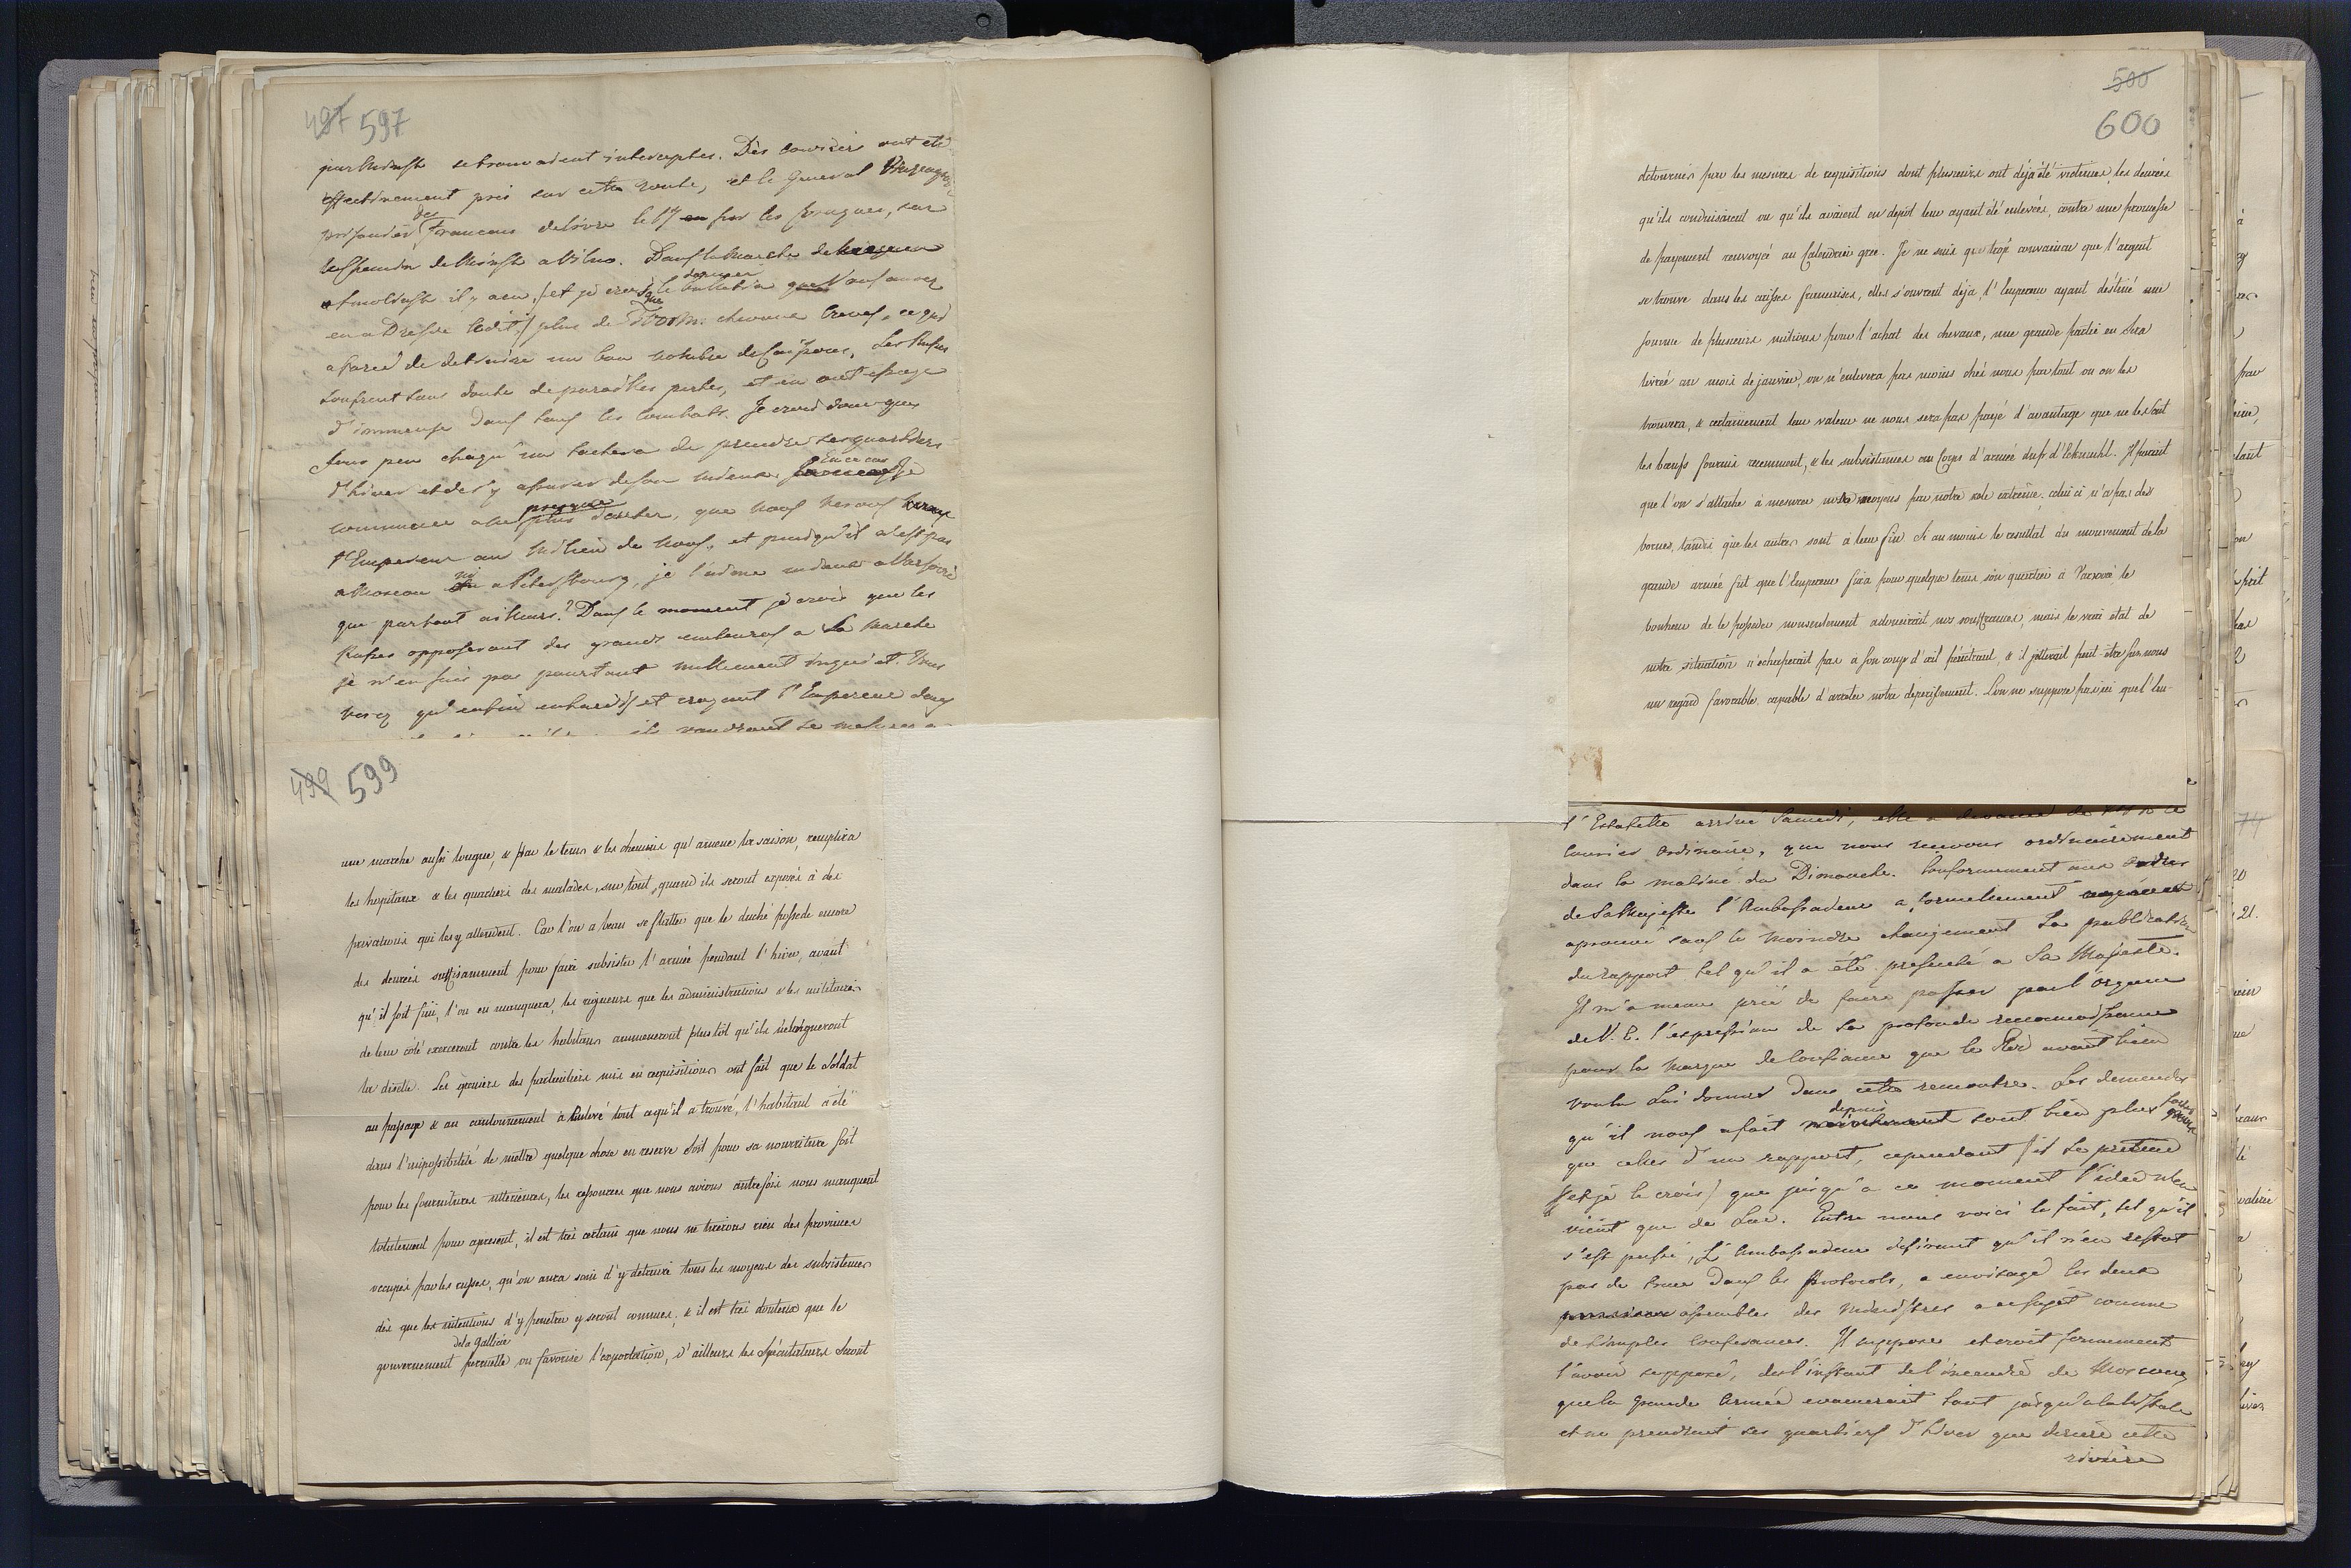 497 597
par Minsk se trouvaient interceptes. Des couriers ont été
effectivement pris sur cette route, et le General
des
prisonnier Francais delivré le 17 par les, sur
le chemin de Minsk a Vilna. Dans la marche de
dernier
a Smolensk il y a eu (et je crois que le bulletin que Vous aurez
en a Dresde le dit) plus de chevaux creves, ce qui
a forcé de detruire un bon nombre de Caissons. Les Russes
soufrent sans doute de pareilles pertes, et en ont essuye
d'immense dans tous les combats. Je crois donc que
sous peu chaqu'un tachera de prendre ses quartiers
En ce cas
d'hiver et de s'y assurer de son mieux. Je
presque
commence a ne plus douter, que nous verons
l'Empereur au milieu de nous, et puisqu'il n'est pas
ni
a Moscou a Petersbourg, je l'aime mieux a Varsovie
que partout ailleurs. Dans le moment je crois que les
Russes opposeront des grands embarras a sa marche
je n'en suis pas pourtant nullement inquiet. Vous
verez qu'enfin enhardis et croyant l'Empereur dans
ils voudront se mesurer a
499 599
une marche aussi longue, & par le tems & les chemins qu'amene la saison, remplira
les hopitaux & les quartiers des malades, sur tout, quand ils seront exposés à des
privations qui les y attendent. Car l'on a beau se flatter que le duché possede encore
des denrées suffisamment pour faire subsister l'armée pendant l'hiver, avant
qu'il soit fini, l'on en manquera, les rigueurs que les administrations & les militaires
de leur côté exerceront contre les habitans ammeneront plustôt qu'ils n'eloigneront
la disette. Les greniers des particuliers mis en requisition ont fait que le Soldat
au passage & au cantonnement à enlevé tout ce qu'il a trouvé, l'habitant a été
dans l'impossibilité de mettre quelque chose en reserve soit pour sa nourriture soit
pour les fournitures ulterieures, les ressources que nous avions autrefois nous manquent
totalement pour apresent, il est très certain que nous ne tirerons rien des provinces
occupés par les russes, qu'on aura soin d'y detruire tous les moyens des subsistences
dès que les intentions d'y penetrer y seront connues, & il est très douteux que le
de la Gallicie
gouvernement permette ou favorise l'exportation, d'ailleurs les Spéculateurs seront
500
600
détournés par les mesures de requisitions dont plusieurs ont déjà été victimes, les denrées
qu'ils conduisaient ou qu'ils avaient en depôt leur ayant été enlevées, contre une promesse
de payement renvoyé au Calendrier grec. Je ne suis que trop convaincu que l'argent
se trouve dans les caisses francaises, elles s'ouvrent déja, l'Empereur ayant destiné une
somme de plusieurs milions pour l'achat des chevaux, une grande partie en sera
livrée au mois de janvier, on n'enlevera pas moins chez nous par tout ou on les
trouvera, & certainement leur valeur ne nous sera pas payé d'avantage que ne le sont
les bœufs fournis recemment, & les subsistences au Corps d'armée du pr. d'Ekmuhl. Il parait
que l'on s'attache à mesurer nos moyens par notre zele extreme, celui ci n'a pas des
bornes, tandis que les autres sont à leur fin. Si au moins le resultat du mouvement de la
grande armée fut que l'Empereur fixa pour quelque tems son quartier à Varsovie le
bonheur de le posseder nonseulement adoucirait nos souffrances, mais le vrai état de
notre situation n'echaperait pas à son coup d'œil pénétrant, & il jetterait peut-être sur nous
un regard favorable capable d'arreter notre deperissement. L'on ne suppose pas ici que l'En-
l'Estafette arrivé Samedi, elle a devancé de
courier ordinaire, que nous recevons ordinairement
dans la matiné du Dimanche. Conformement aux ordres
de Sa Majeste l'Ambassadeur a formellement
aprouvé sans le moindre changement la publication
du rapport tel qu'il a été presenté a Sa Majesté.
Il m'a meme prié de faire passer par l'organe
de V. E. l'expression de sa profonde reconnaissance
pour la marque de confiance que le Roi avait bien
voulu Lui donner dans cette rencontre. Les demandes
depuis
qu'il nous a fait sont bien plus fortes
que celles d'un rapport, cependant il se pretend
(et je le crois) que jusqu'a ce moment l'idée n'en
vient que de Lui. Entre nous voici le fait, tel qu'il
s'est passé, L'Ambassadeur desirant qu'il n'en restat
pas de trace dans les Protocols, a envisagé les deux
assemblées des Ministres a ce sujet comme
de simples Conferances. Il suppose et croit fermement
l'avoir supposé, des l'instant de l'incendie de Moscou,
que la grande Armée evacuerait tout jusqu'a la Vistule
et ne prendrait ses quartiers d'hiver que derière cette
rivière